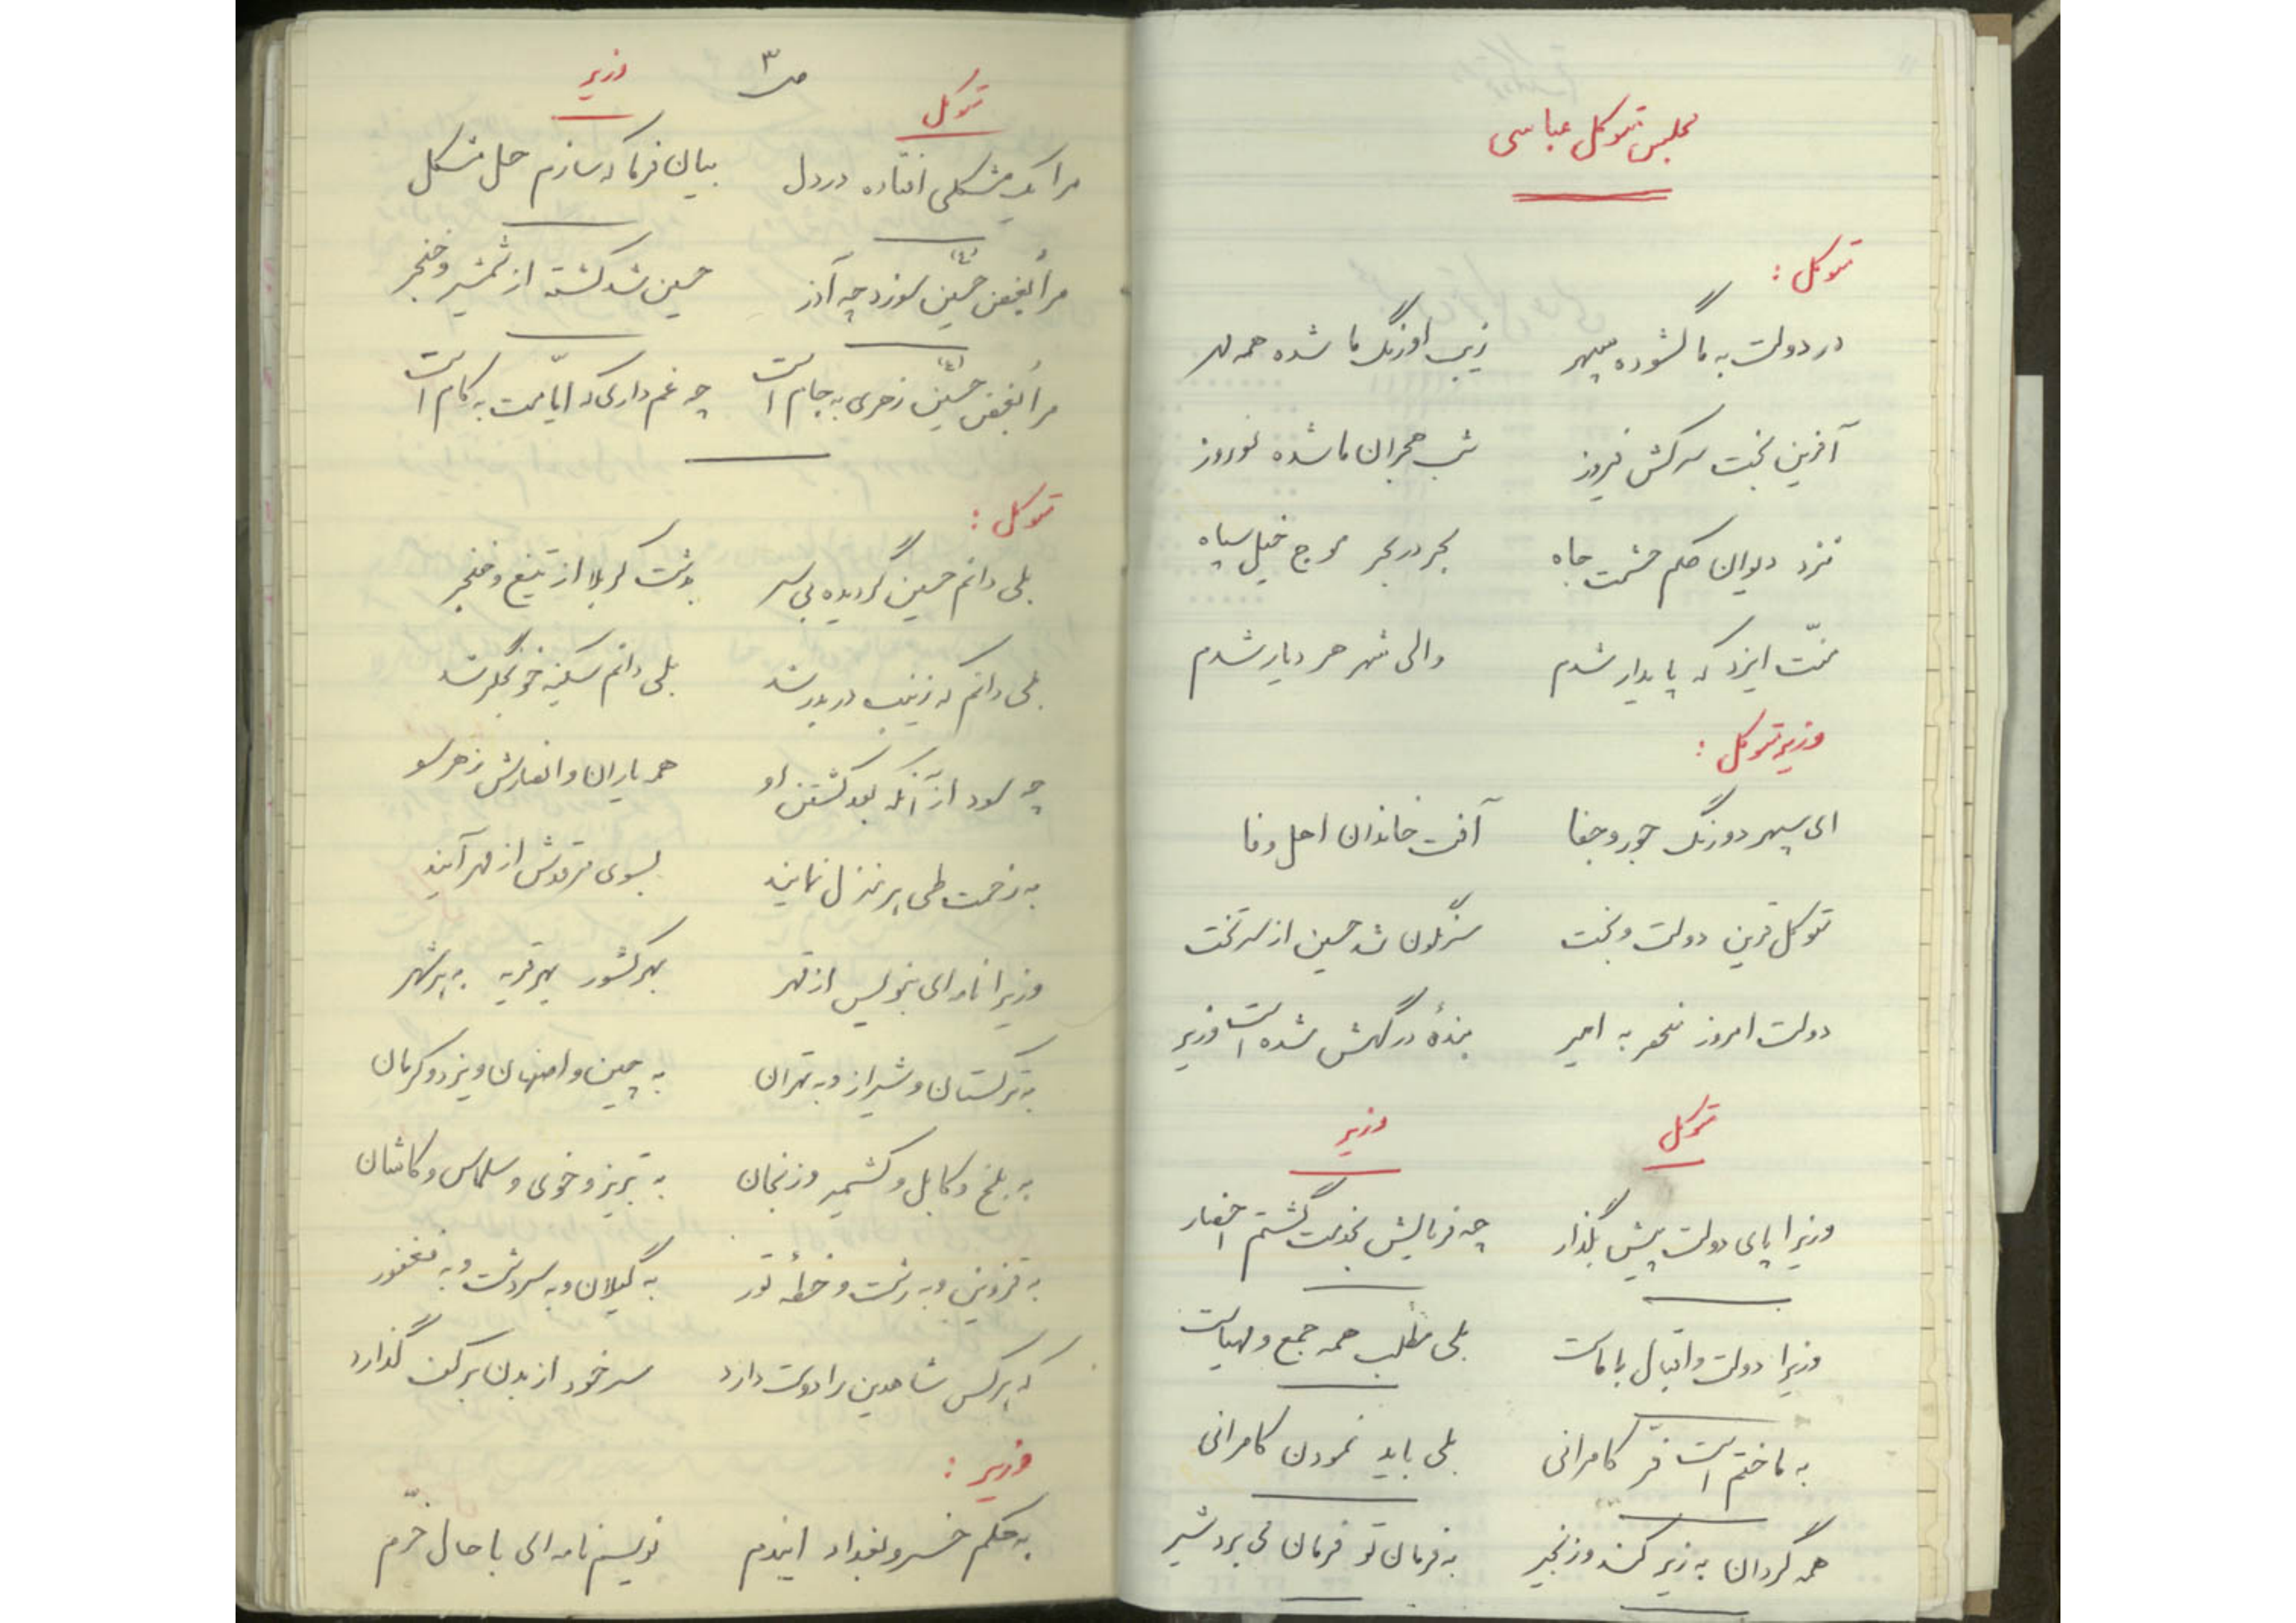 مجلس متوکل عباسی
متوکل :
در دولت به ما گشوده سپهر    زیب اورنگ ما شده همه مهر
آفرین بخت سرکش فیروز    شب هجران ما شده نوروز
نزد دیوان حکم حشمت جاه    بحر در بحر موج خیل سپاه
منّت ایزد که پایدار شدم    والی شهر هر دیار شدم
وزیر متوکل :
ای سپهر دورنگ جور و جفا    آفت خاندان اهل وفا
متوکل قرین دولت و بخت    سرنگون شد حسین از سر تخت
دولت امروز منحصر به امیر    بندهٔ درگهش شده است وزیر
متوکل    وزیر
وزیرا پای دولت پیش بگذار    چه فرمایش بخدمت گشتم احضار
وزیرا دولت و اقبال با ماست    بلی مطلب همه جمع و مهیاست
به ما ختم است فرّ کامرانی    بلی باید نمودن کامرانی
همه گردان به زیر کمند و زنجیر    به فرمان تو فرمان می برد شیر
ص ۳
متوکل    وزیر
مرا یک مشکلی افتاده در دل    بیان فرما که سازم حل مشکل
مرا بغض حسین (ع) سوزد چه آذر    حسین شد کشته از شمشیر و خنجر
مرا بغض حسین (ع) زهری به جام است    چه غم داری که ایّامت به کام است
متوکل :
بلی دانم حسین گردیده بی سر    بدشت کربلا از تیغ و خنجر
بلی دانم که زینب در بدر شد    بلی دانم سکینه خونجگر شد
چه سود از آنکه بعد کشتن او    همه یاران و انصارش ز هر سو
به زحمت طی هر منزل نمایند    بسوی مرقدش از مهر آیند
وزیرا نامه ای بنویس از قهر    بهر کشور بهر قریه به هر شهر
به ترکستان و شیراز و به تهران    به چین و اصفهان و یزد و کرمان
به بلخ و کابل و کشمیر و زنجان    به تبریز و خوی و سلماس و کاشان
به قزوین و به رشت و خطهٔ تور    به گیلان و به سردشت و به فغفور
که هر کس شاه دین را دوست دارد    سر خود از بدن بر کف گذارد
وزیر :
به حکم خسرو بغداد ایندم    نویسم نامه ای با حال خرّم